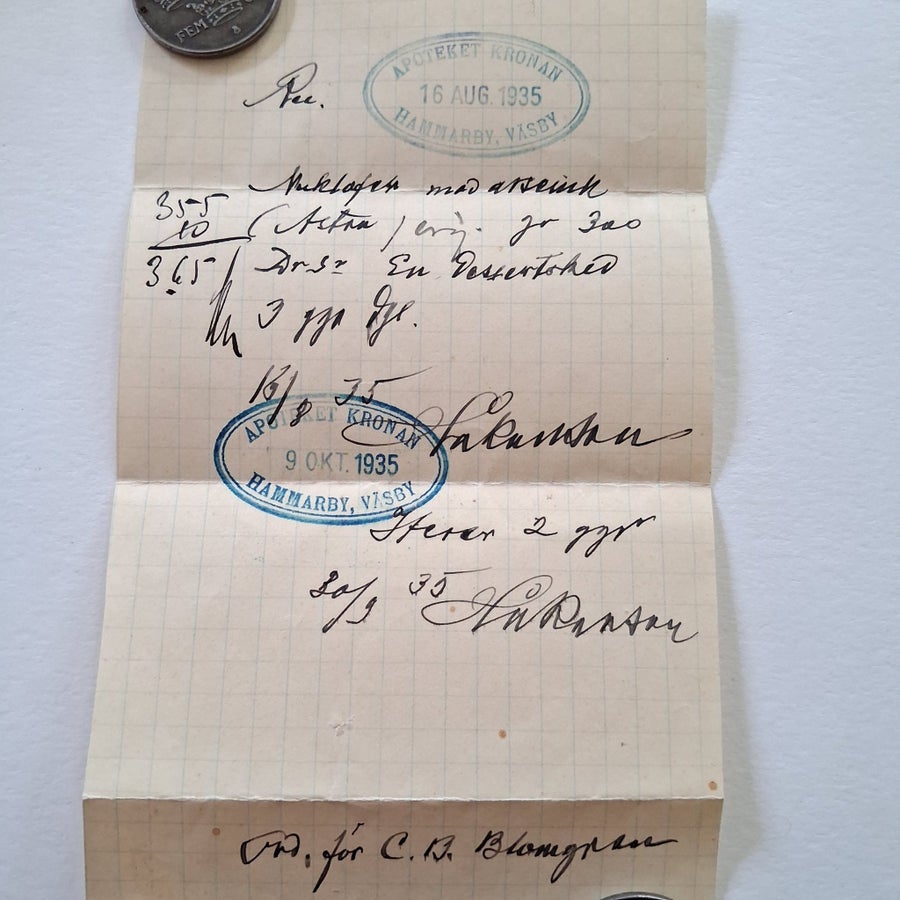 FEM
8
APOTEKET KRONAN
16 AUG. 1935
HAMMARBY, VÄSBY
Rec.
med arsenik
355
10
365
(Astra) orig. gr 300
D:r S:r En dessertsked
3 ggr dgl.
/8 35
Håkansson
APOTEKET KRONAN
9 OKT. 1935
HAMMARBY, VÄSBY
Iterer 2 ggr
30/9 35
Håkansson
Ord. för C. B. Blomgren